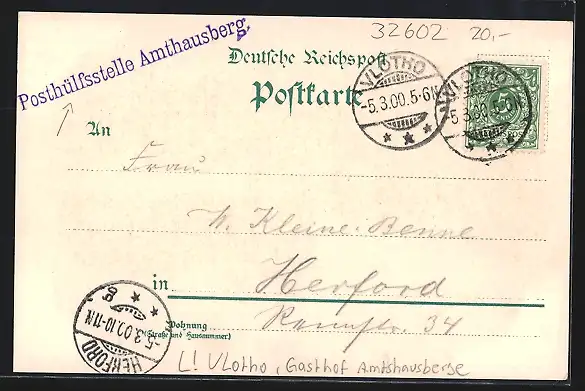 32602 20,-
Posthülfsstelle Amthausberg.
Deutsche Reichspost
Postkarte
VLOTHO
-5.3.00.5-6N
VLOTHO
5.3.00.5-6N
5
An
Frau
W. Kleine-Benne
in Herford
Wohnung
(Straße und Hausnummer)
34
HERFORD
5.3.00.10-11N
L! Vlotho, Gasthof Amtshausberge